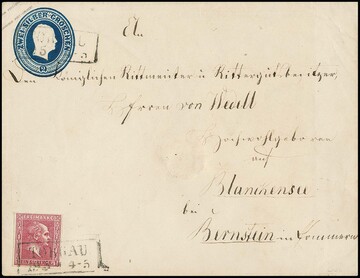 ZWEI SILBERGROSCHEN
2
An
Den Königlichen Rittmeister u Rittergutsbesitzer,
Herrn von Wedell
Hochwohlgeboren
auf
Blanckensee
bei
Bernstein in Pommern
4-5